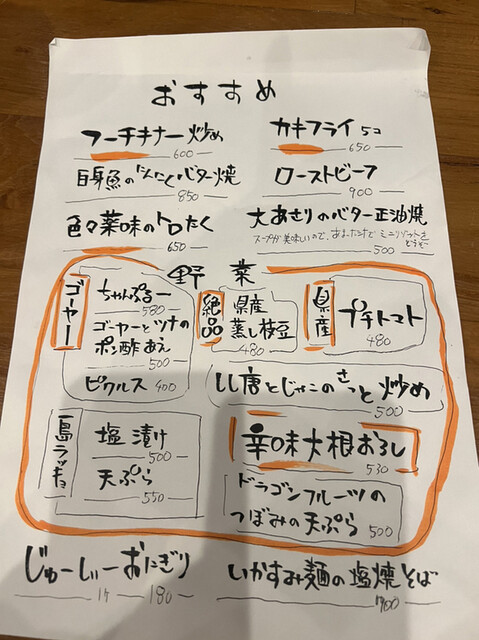 おすすめ
フーチキナー炒め
600
カキフライ 5コ
650
白身魚のにんにくバター焼
850
ローストビーフ
900
色々薬味のトロたく
650
大あさりのバター正油焼
スープが美味しいので、あまったすでミニリゾットをどうぞ
500
野菜
ゴーヤー
ちゃんぷるー
580
ゴーヤーとツナの
ポン酢あえ
500
ピクルス 400
絶品
県産
蒸し枝豆
480
県産
プチトマト
480
しし唐とじゃこのさっと炒め
500
島ラッキョ
塩漬け
500
天ぷら
550
辛味大根おろし
530
ドラゴンフルーツの
つぼみの天ぷら 500
じゅーしぃーおにぎり
1ケ 180
いかすみ麺の塩焼そば
900